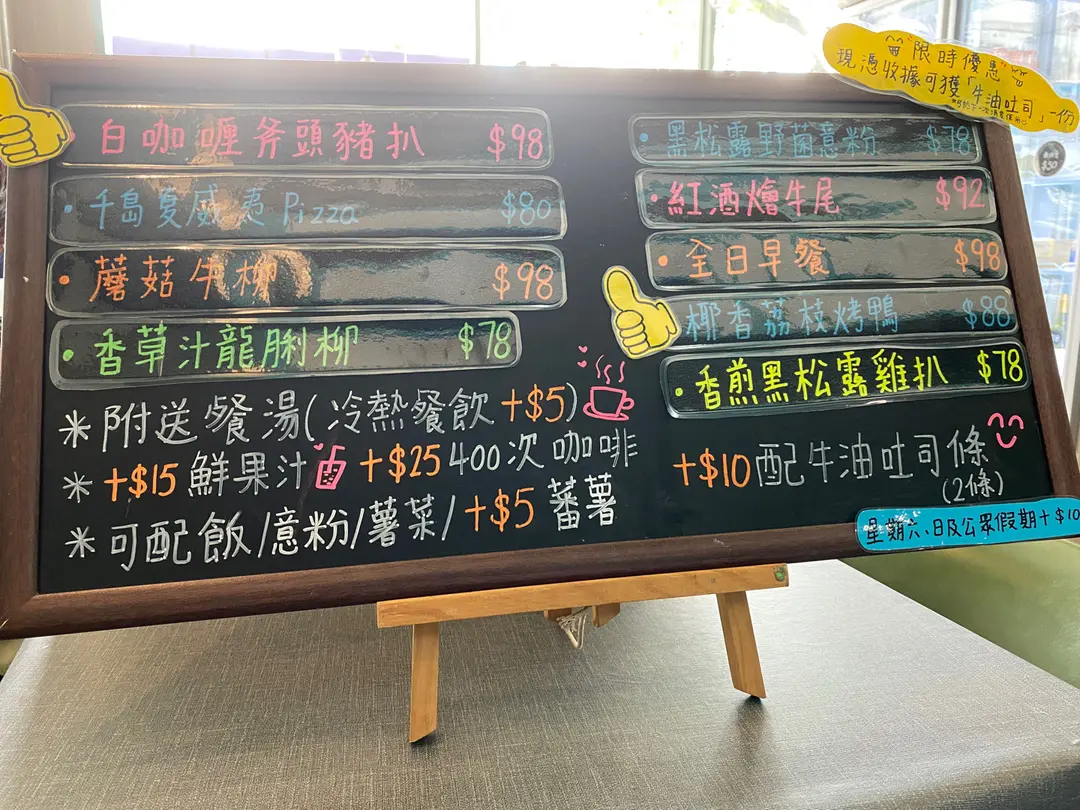 白咖喱斧頭豬扒 $98
·千島夏威夷 Pizza $80
·蘑菇牛柳 $98
·香草汁龍脷柳 $78
*附送餐湯(冷熱餐飲+$5)
*+$15鮮果汁 +$25 400次咖啡
*可配飯/意粉/薯菜/+$5蕃薯
"限時優惠"
現憑收據可獲「牛油吐司」一份
·黑松露野菌意粉 $78
·紅酒燴牛尾 $92
·全日早餐 $98
椰香荔枝烤鴨 $88
·香煎黑松露雞扒 $78
+$10配牛油吐司條
(2條)
星期六、日及公眾假期+$10